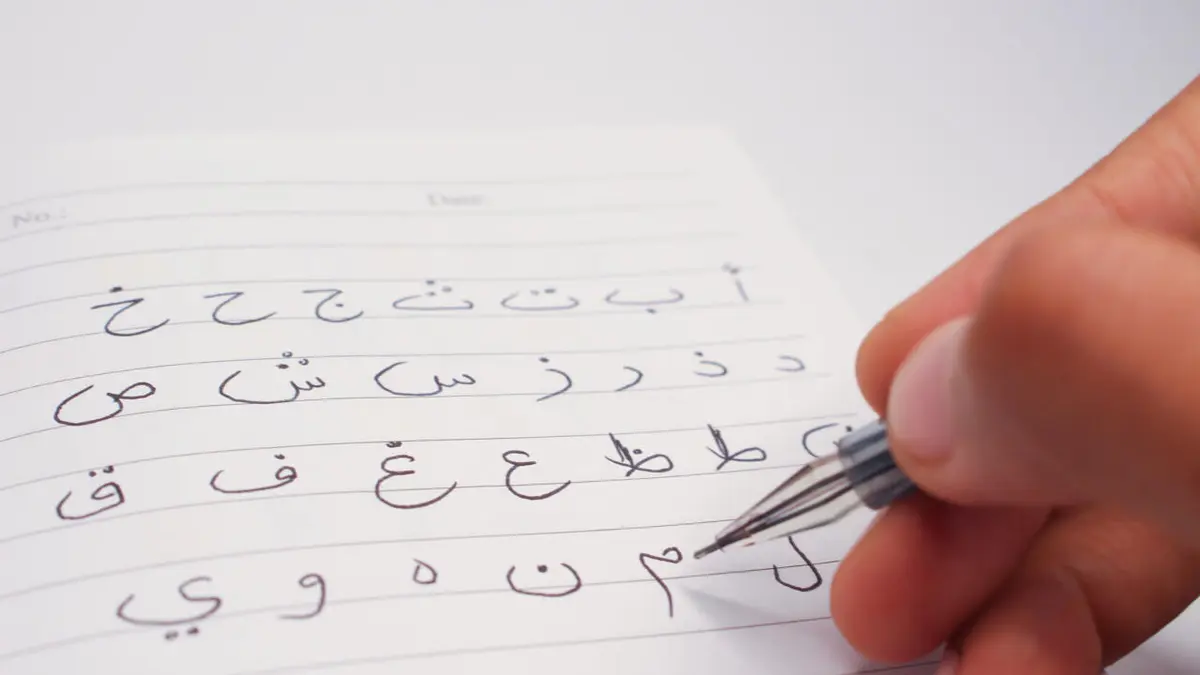 No.: Date:
أ ب ت ث ج ح خ
د ذ ر ز س ش ص
ط ظ ع غ ف ق
ل م ن ه و ي